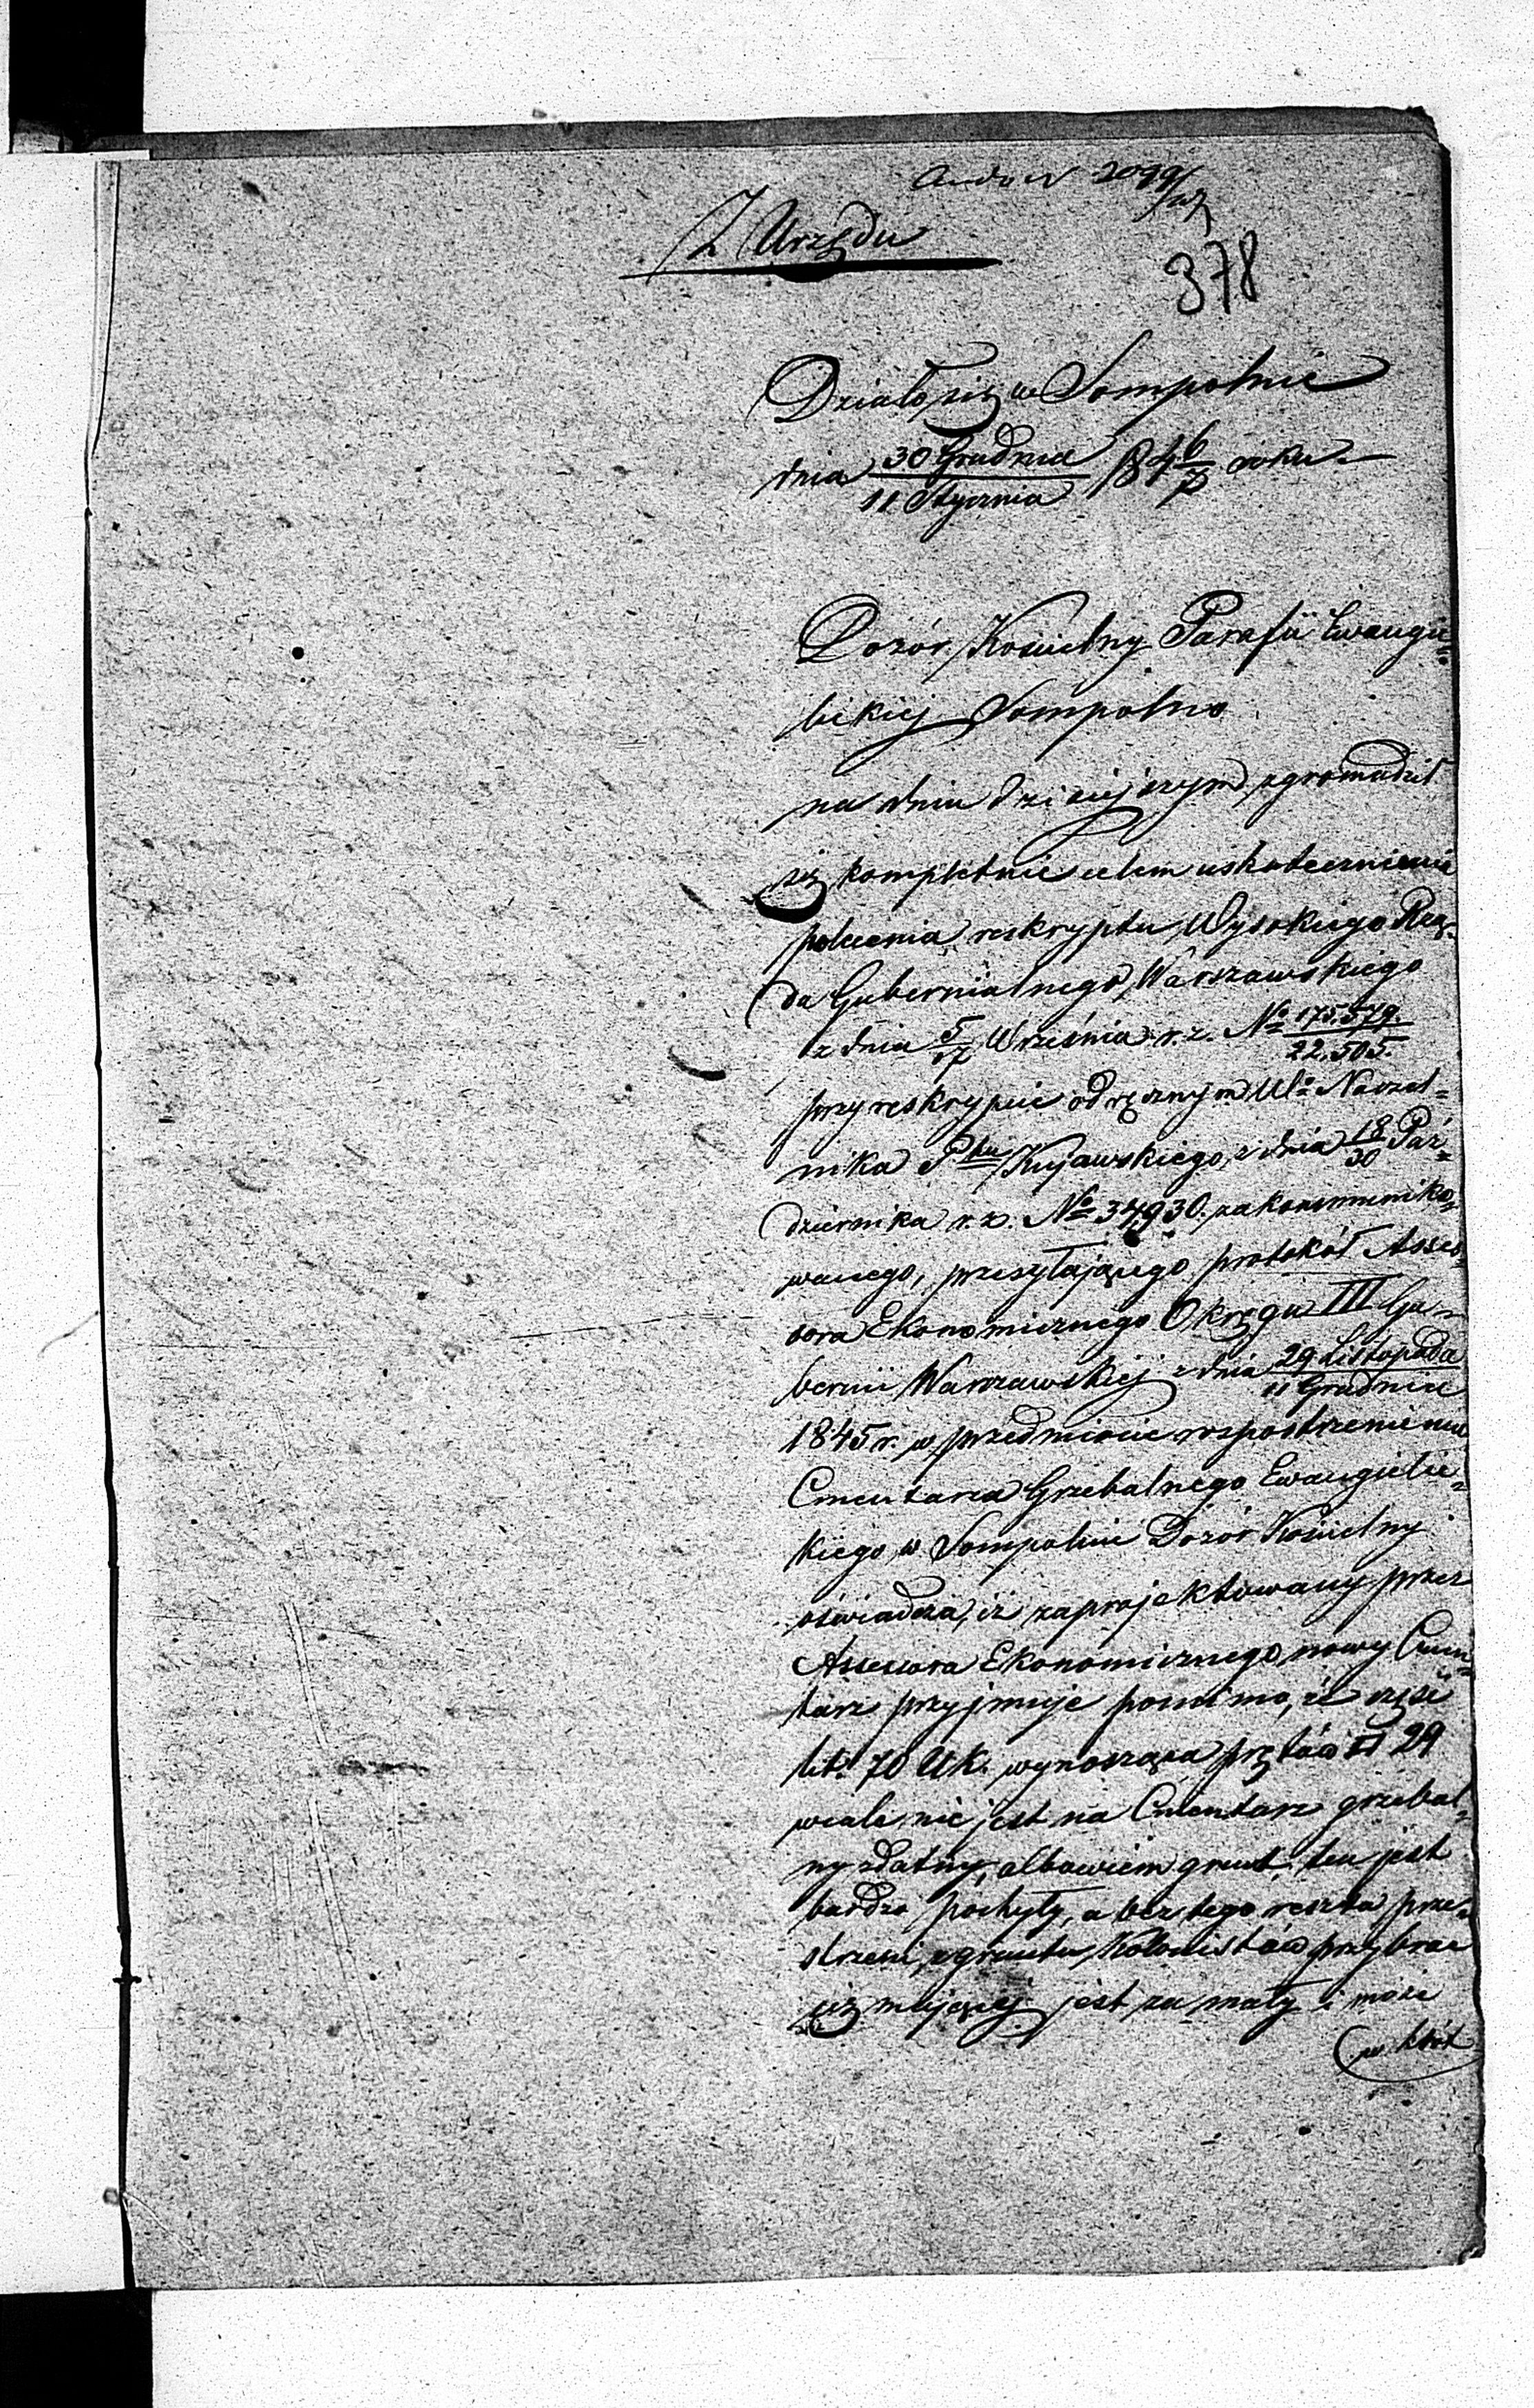 ad N 2099/47
Z Urzędu
378
Działo się w Sompolnie
dnia 30 Grudnia / 11 Stycznia 1846/7 roku.
Dozór Kościelny Parafii Ewangie=
lickiej Sompolno
na dniu dzisiejszym zgromadził
się kompletnie celem uskutecznienia
polecenia reskryptu Wysokiego Rzą=
du Gubernialnego Warszawskiego
z dnia 5/17 Września r. z. No 175.579. / 22.505.
przy reskrypcie odręcznym Wo Naczel=
nika Ptu Kujawskiego, z dnia 18/30 Paź=
dziernika r. z. No 34930. zakommuniko=
wanego, przesyłającego protokół Asses=
sora Ekonomicznego Okręgu III Gu=
bernii Warszawskiej z dnia 29 Listopada / 11 Grudnia
1845 r. w przedmiocie rozpostrzenienia
Cmentarza Grzebalnego Ewangielic=
kiego w Sompolnie Dozór Kościelny
oświadcza, iż zaprojektowany przez
Assessora Ekonomicznego nowy Cmen=
tarz przyjmuje pomimo, że część
lit. 70 Uk. wynosząca prętów □ 29
wcale nie jest na Cmentarz grzebal=
ny zdatny, albowiem grunt ten jest
bardzo pochyły, a bez tego reszta prze=
strzeni, z gruntu Kolonistów przybrać
się mającej jest za mały i może
w krót